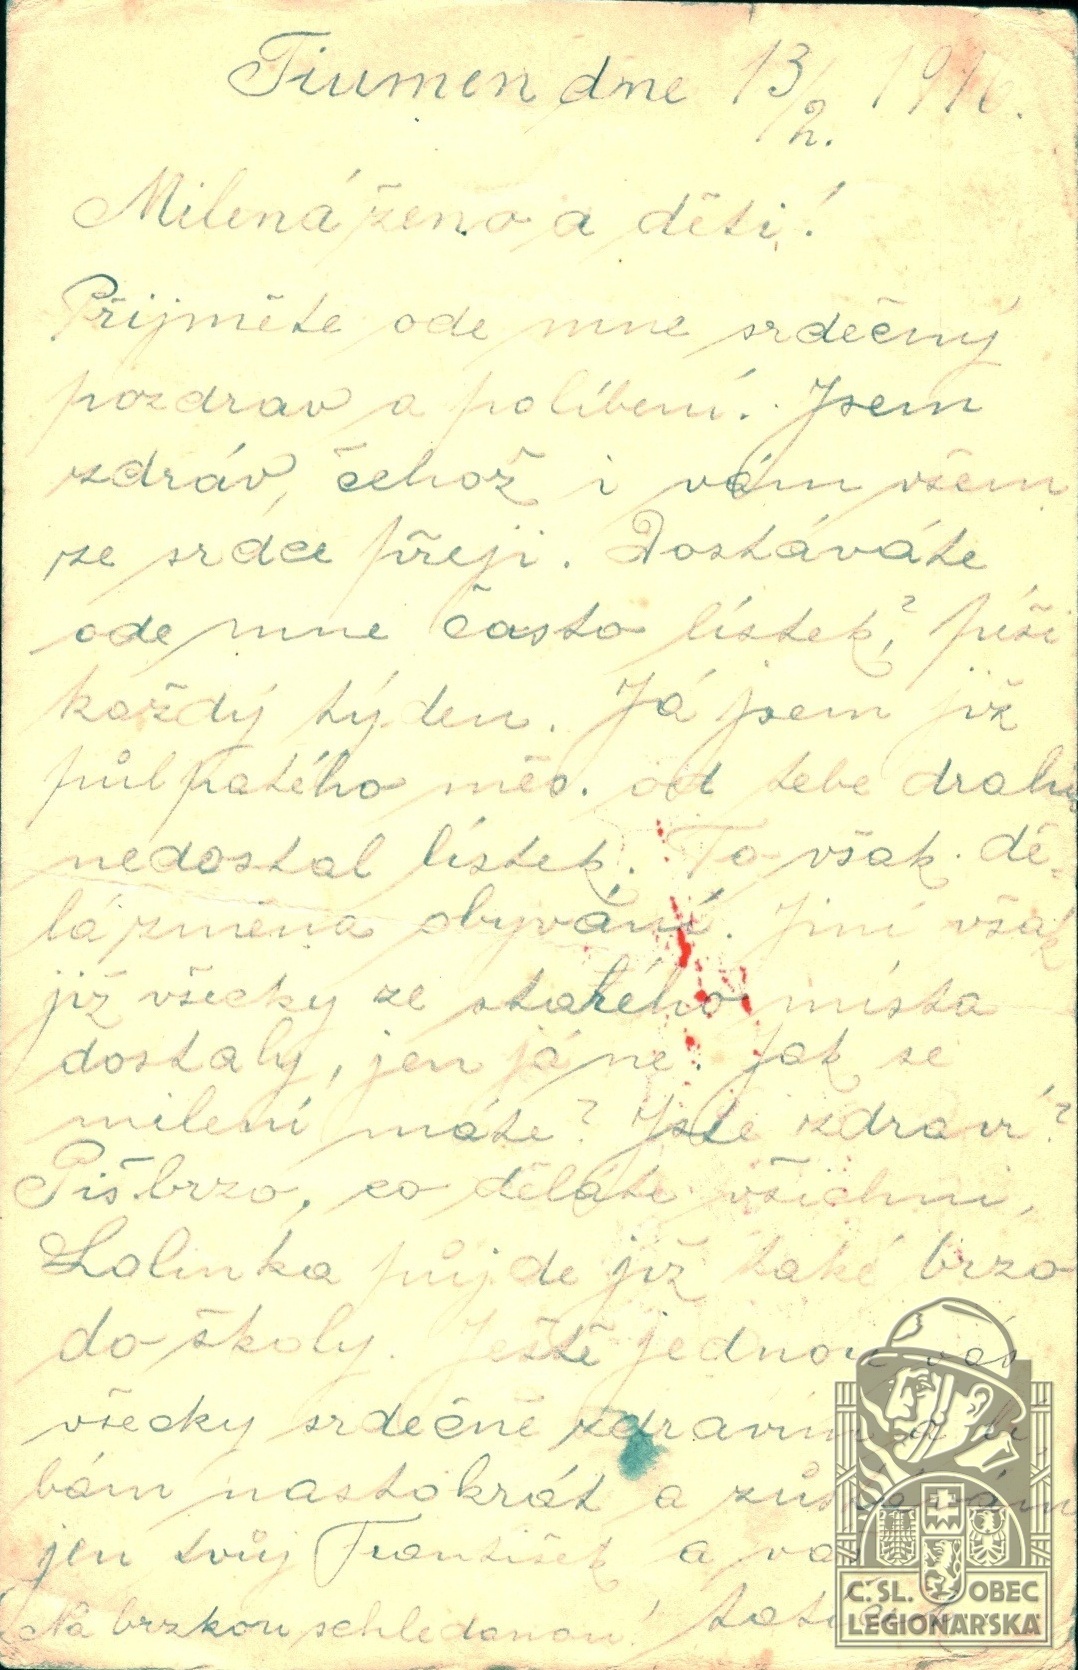 Tiumen dne 13/2. 1916.
Milená ženo a děti!
Přijměte ode mne srdečný
pozdrav a políbení. Jsem
zdráv, čehož i vám všem
ze srdce přeji. Dostáváte
ode mne často lístek? píši
každý týden. Já jsem již
půl patého měs. od tebe drahá
nedostal lístek. To však dě-
lá změna obyvání. Jiní však
již všecky ze starého místa
dostaly, jen já ne. Jak se
milení máte? Jste zdraví?
Piš brzo, co děláte všichni,
Lalinka půjde již také brzo
do školy. Ještě jednou vás
všecky srdečně zdravím a lí
bám nastokrát a zůstávám
jen tvůj František a váš
Na brzkou schledanou!
Č. SL. OBEC
LEGIONÁŘSKÁ